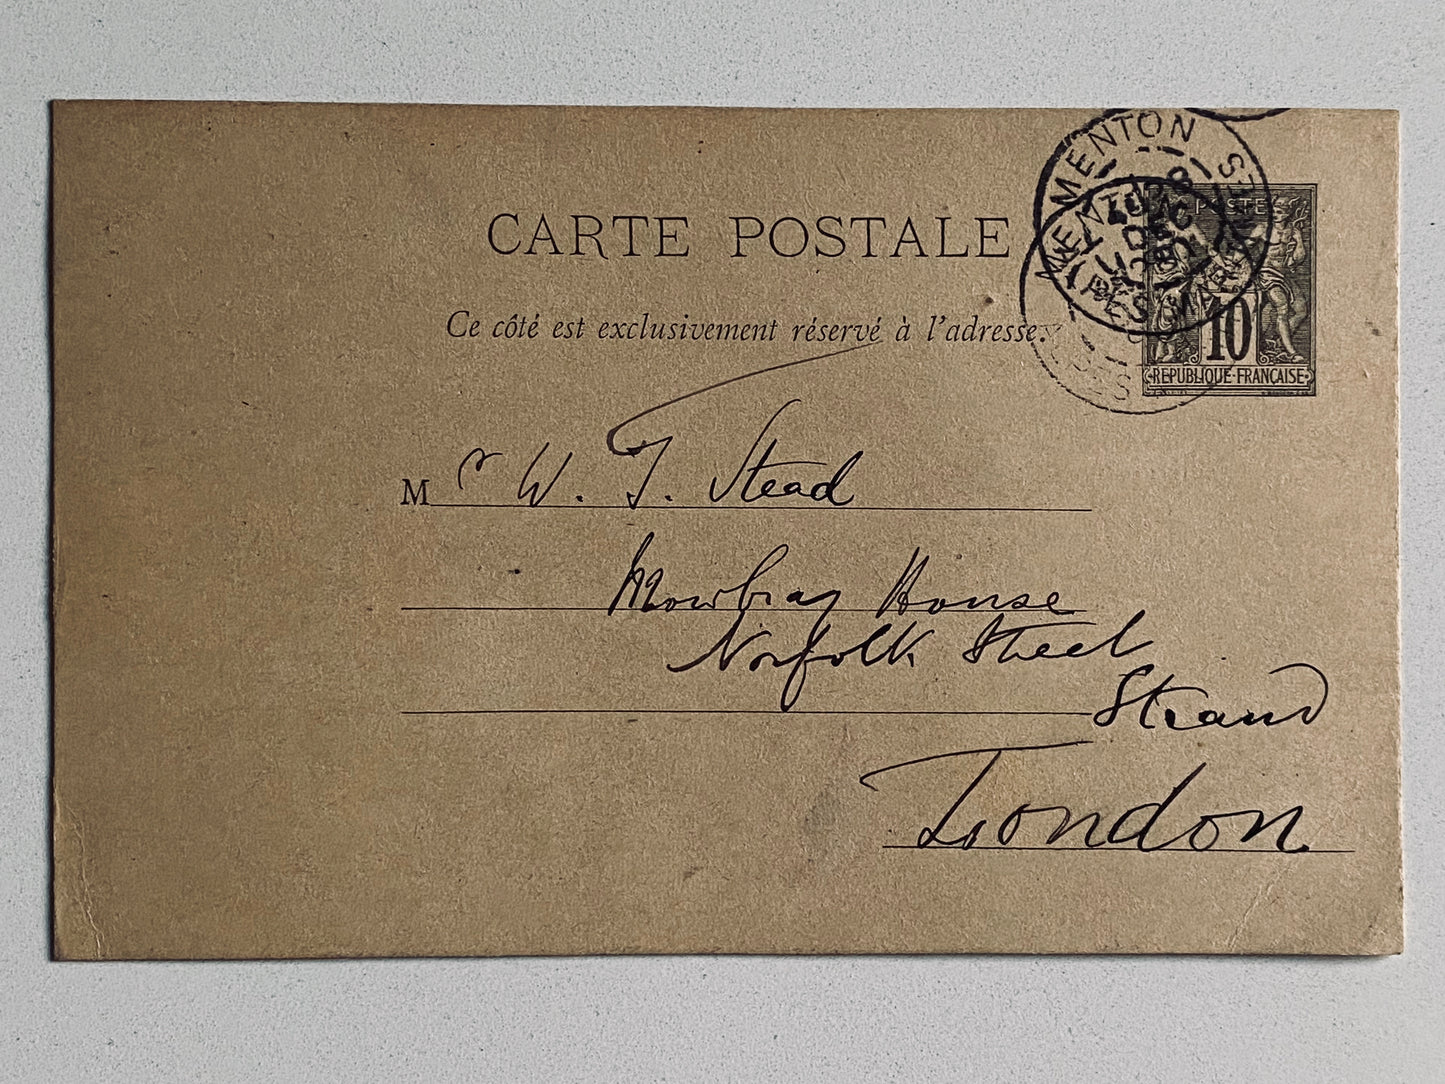 CARTE POSTALE
Ce côté est exclusivement réservé à l'adresse.
MENTON
MENTON
POSTE
10
REPUBLIQUE FRANÇAISE
Mr W. T. Stead
Mowbray House
Norfolk Street
Strand
London